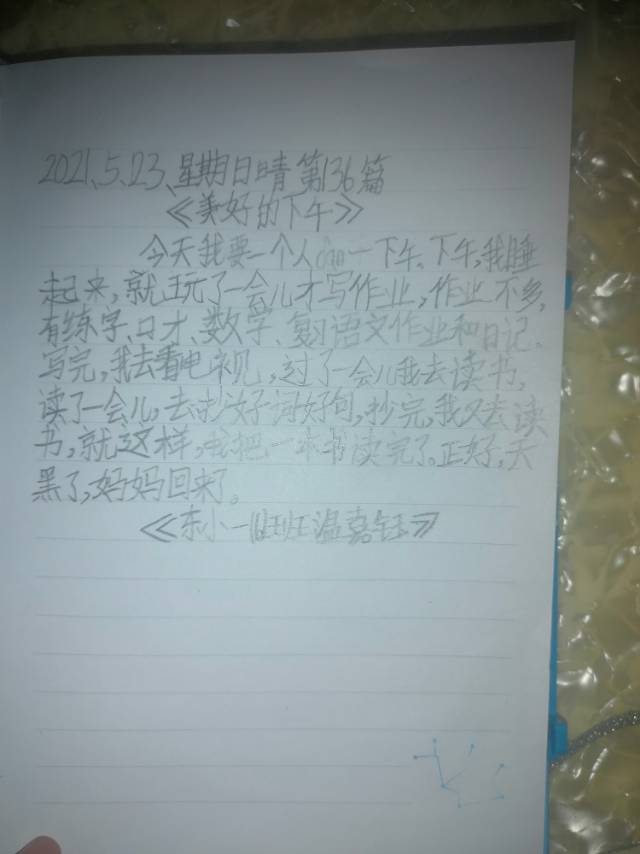 2021、5.23、星期日晴 第136篇
《美好的下午》
今天我要一个人dāo一下午。下午，我睡
起来，就玩了一会儿才写作业，作业不多，
有练字、口才、数学、复习语文作业和日记。
写完，我去看电视，过了一会儿我去读书，
读了一会儿，去抄好词好句，抄完，我又去读
书，就这样，我把一本书读完了。正好，天
黑了，妈妈回来了。
《东小一 班温嘉钰》